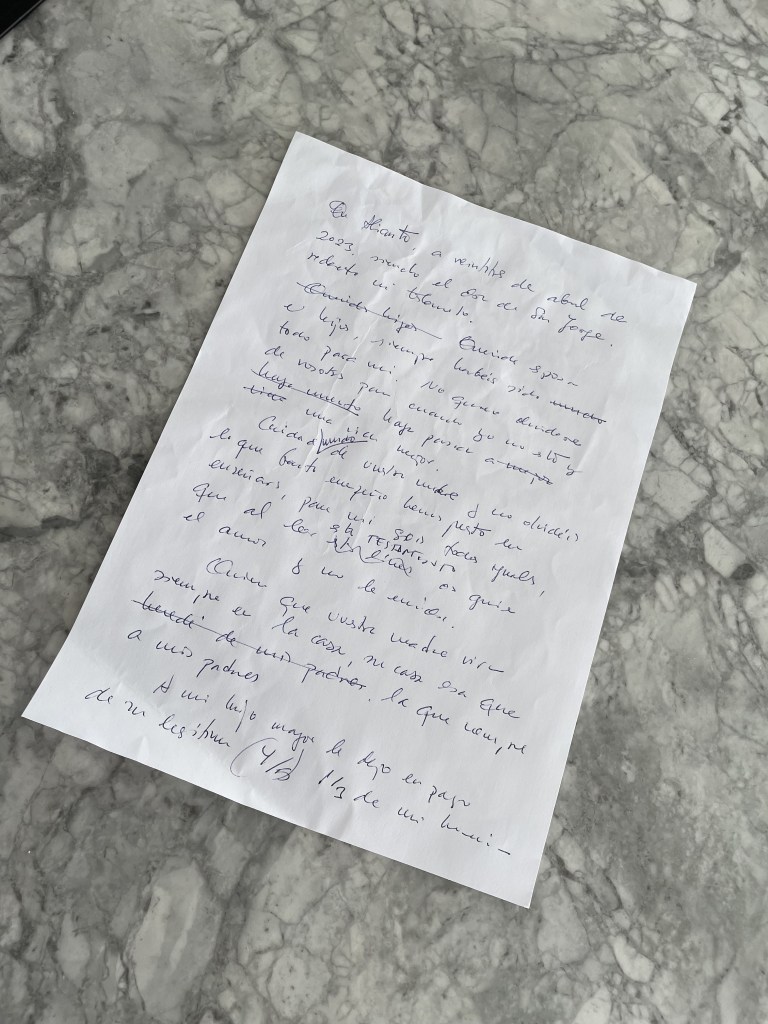 En Alicante, a veintitrés de abril de
2023. siendo el día de San Jorge.
redacto mi testamento.
Querida hijos Querida esposa
e hijos, siempre habéis sido mucho
todo para mi. No quiero olvidarme
de vosotros para cuando yo no esté y
haya muerto haga pasar a mejor
una vida mejor.
Cuidad mucho de vuestra madre y no olvidéis
lo que tanto empeño hemos puesto en
enseñaros, para mi sois todos iguales,
que al leer este TESTAMENTO os guíe
el amor y no la envidia.
Quiero que vuestra madre viva
siempre en la casa, su casa esa que
heredé de mis padres. la que compre
a mis padres
A mi hijo mayor le dejo en pago
de su legítima (4/5) 1/3 de mi